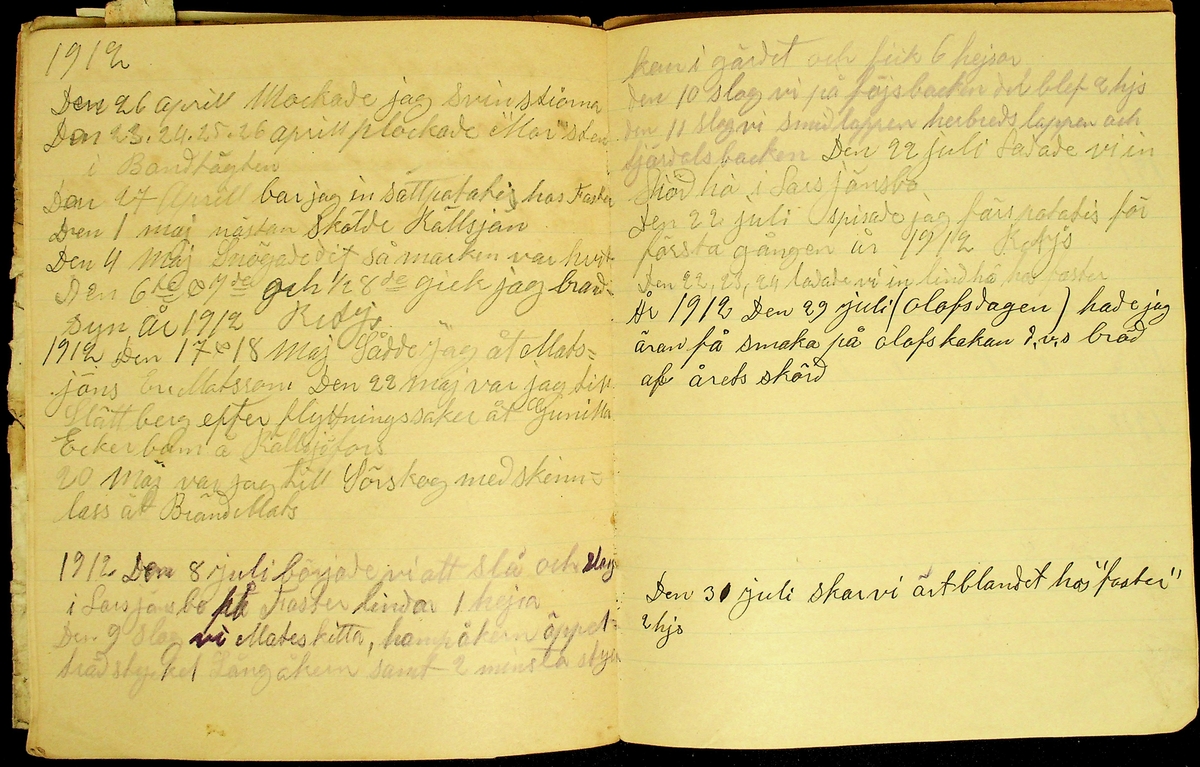 1912
Den 26 aprill Mockade jag svinstiorna
Den 23.24.25.26 aprill plockade Mor sten
i Bandtägten
Den 27 Aprill bar jag in sättpotatis hos Faster
Den 1 maj nästan skälde Källsjön
Den 4 Maj Snögade dit så marken var hvit
Den 6te & 7de och ½ 8de gick jag brand=
syn År 1912
1912 Den 17 & 18 Maj Sådde jag åt Mats=
jöns Er. Matsson Den 22 Maj var jag till
Slättberg efter flyttningssaker åt Gunilla
Eckerbom å Källsjöfors
20 Maj var jag till Sörskog med skinn=
lass åt Bränd Mats
1912 Den 8 juli började vi att slå och slog
i Lars jönsbo på Faster lindar 1 hejsa
Den 9 slog vi Mateskitta, hampåkern öppet=
trädstycket Långåkern samt 2 minsta styc
ken i gärdet och fick 6 hejsor
den 10 slog vi på höjsbacken det blef 2 hjs
den 11 slog vi smedlappen herbredslappen och
fjärdelsbacken Den 22 juli Ladade vi in
hö i Lars jönsbo
Den 22 juli spisade jag färspotatis för
första gången år 1912
Den 22, 23, 24 ladade vi in lindhö hos faster
År 1912 Den 29 juli (olofsdagen) hade jag
äran få smaka på olofskakan d.v.s bröd
af årets skörd
Den 30 juli skar vi ärtblandet hos "faster"
2 hjs